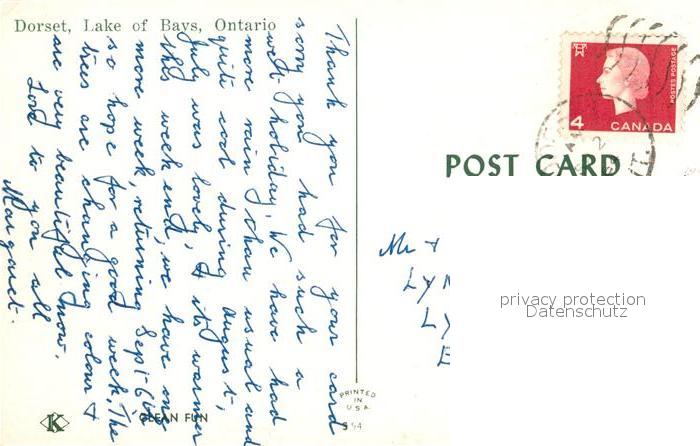 Dorset, Lake of Bays, Ontario
Thank you for your card
sorry you had such a
wet holiday. We have had
more rain than usual and
quite cool during August,
July was lovely, & its warmer
this week end, we have one
more week, returning Sept-6th
so hope for a good week. The
trees are changing colour &
are very beautiful now.
Love to you all
Margaret.
4
POSTES POSTAGE
CANADA
POST CARD
Mr +
LY
L
E
privacy protection
Datenschutz
PRINTED
IN
U.S.A.
K
CLEAN FUN